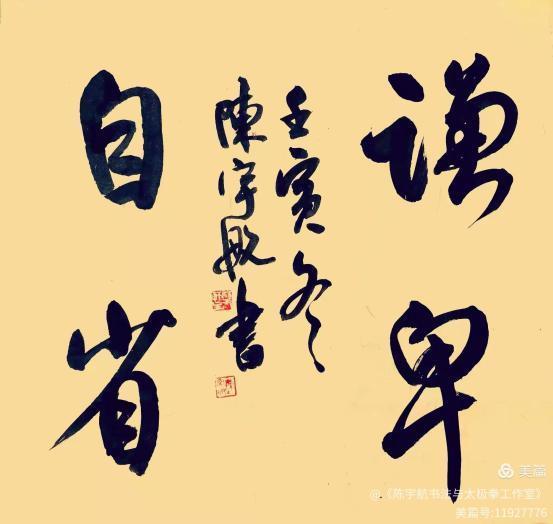 謙卑
自省
壬寅冬
陳宇航書
美篇
@《陈宇航书法与太极拳工作室》
美篇号:11927776